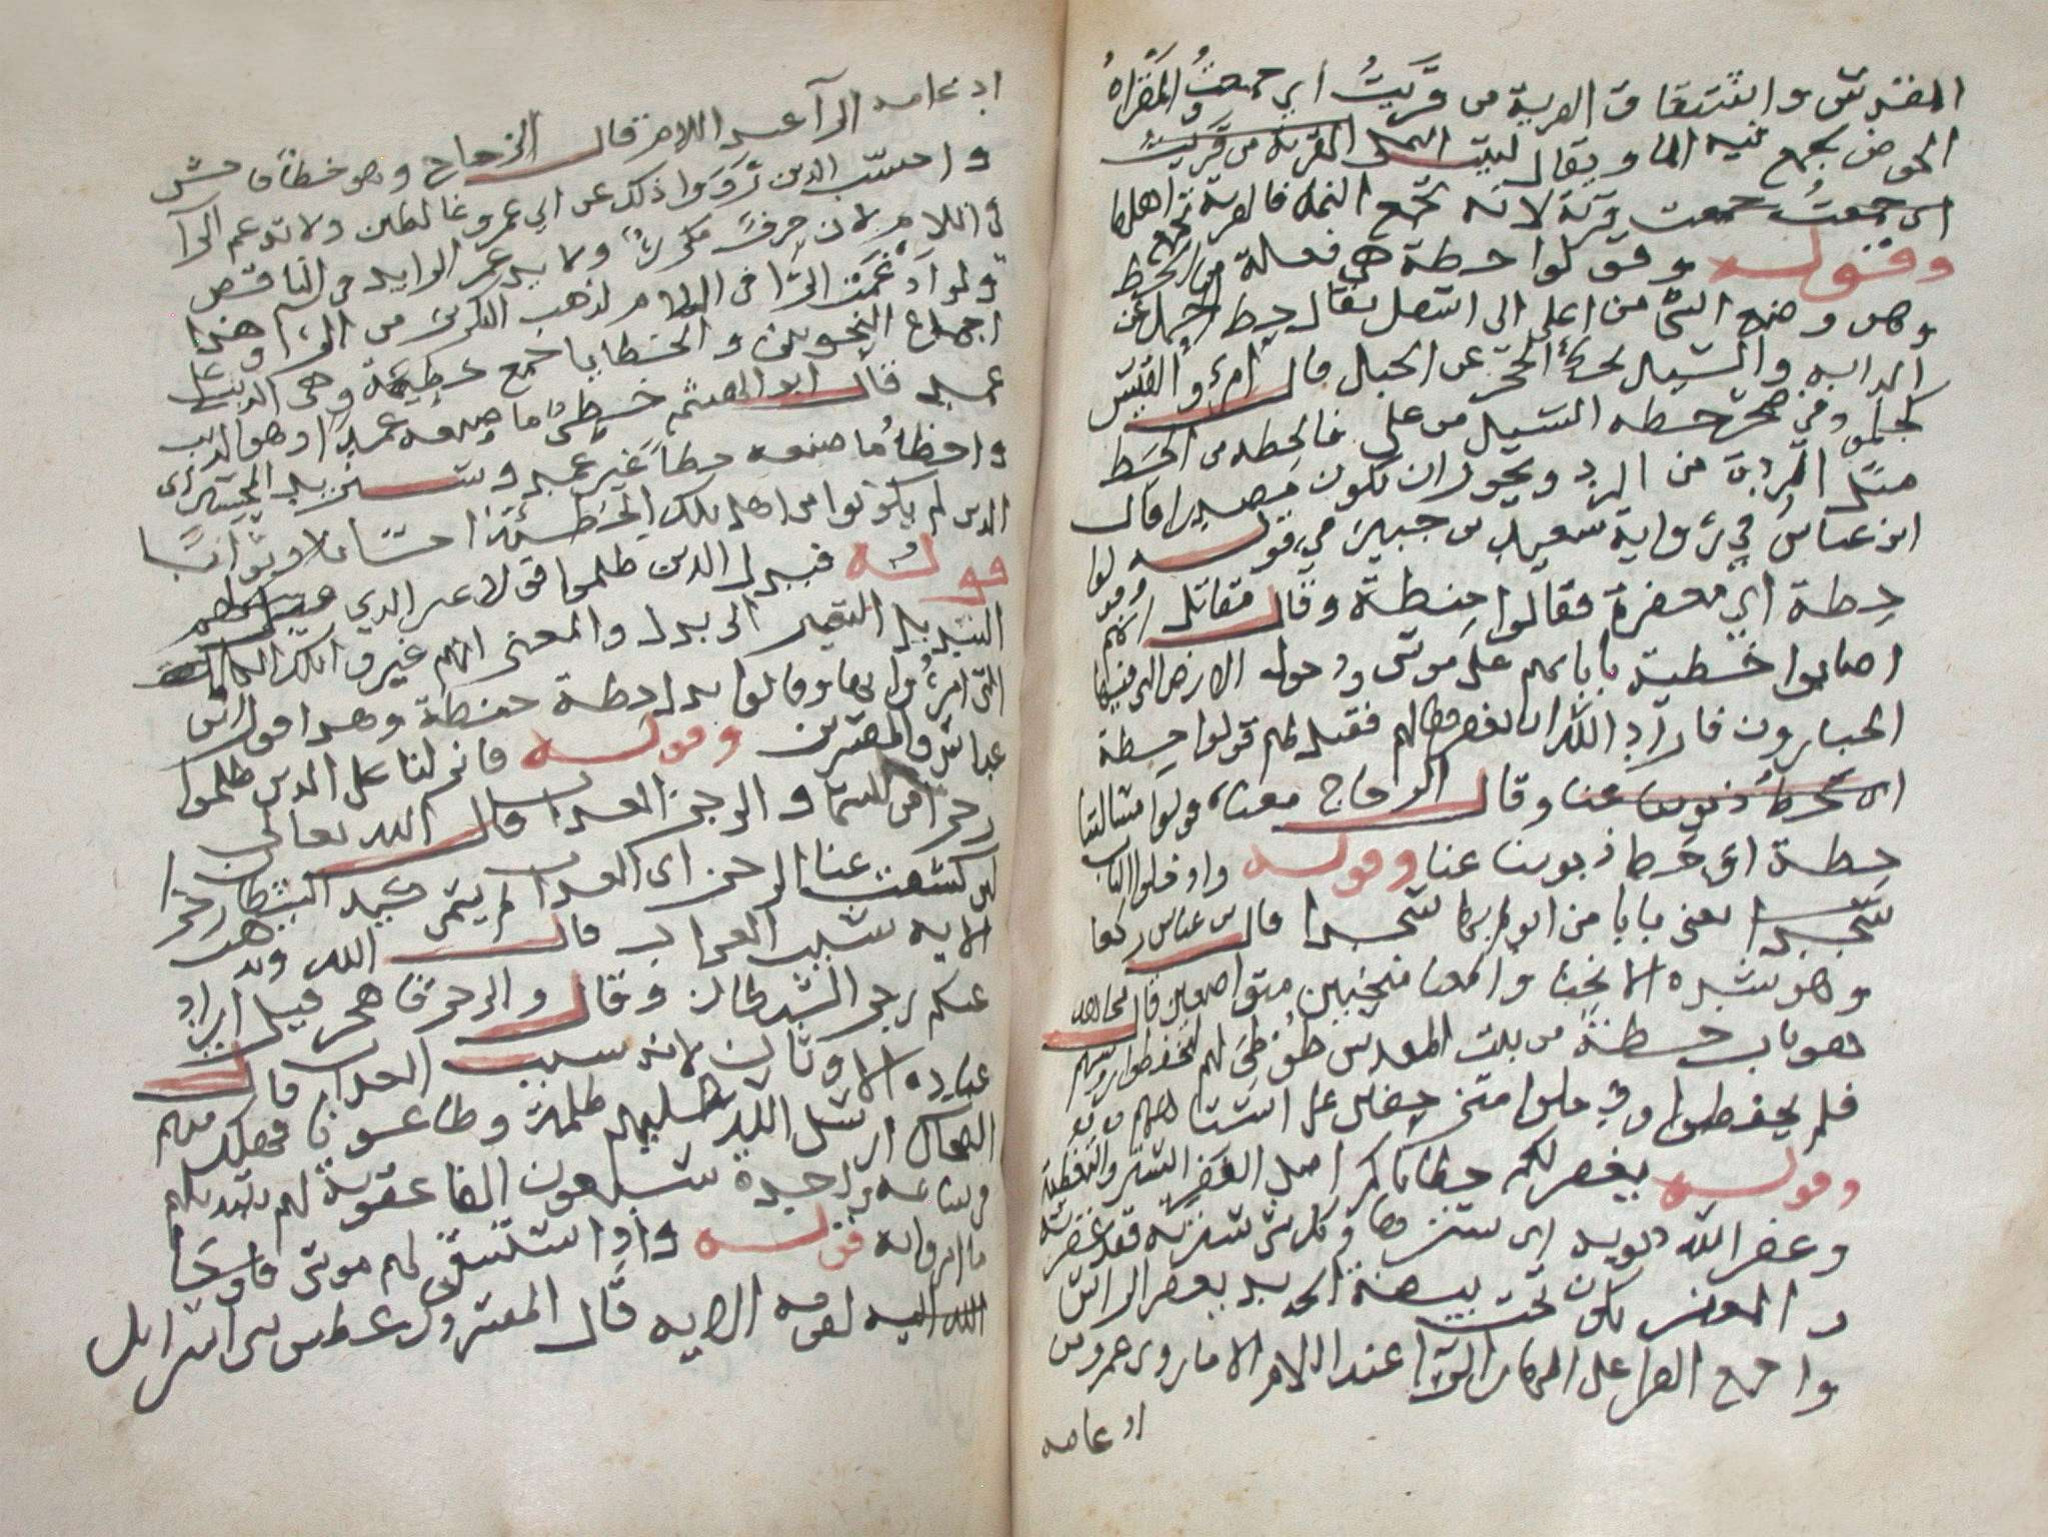 المقدس واشتقاق القرية من قَرَيتُ اي جمعتُ والمَقراةُ
الحوض يجمع فيه الما ويقال لبيت النمل القرية من قَرَيتُ
اى جمعتُ جمعت قرية لانه تجمع النمل فالقرية تجمع اهلها
وقوله وقولوا حطة هي فعلة من الحط
وهو وضع الشئ من اعلى الى اسفل يقال حط الحمل عن
الدابه والسيل يحط الحجر عن الجبل قال امرؤ القيس
كجلمود صخر حطه السيل من عل فالحطه من الحط
مثل الردة من الرد ويجوز ان تكون مصدرا قال
ابن عباس في رواية سعيد بن جبير في قوله
حطة اي مغفرة فقالوا حنطة وقال مقاتل انهم
اصابوا خطية بابايهم على موسى دخول الارض التي فيها
الجبارون فاراد الله ان يغفرها لهم فقيل لهم قولوا حطة
اى تحط ذنوبنا عنا وقال الزجاج معناه قولوا مسالتنا
حطة اي حط ذنوبنا عنا وقوله وادخلوا الباب
سُجّدا يعنى بابا من ابوابها سجدا قال بن عباس ركعا
وهو شدة الانحنا والمعنا منحنين متواضعين قال مجاهد
هو باب حطة من بيت المقدس طوطئ لهم ليخفضوا روسهم
فلم يخفضوا ودخلوا متزحفين على استاههم
وقوله يغفر لكم خطاياكم اصل الغفر الستر والتغطية
وغفر الله ذنوبه اى سترها وكل شئ سترته فقد غفرته
والمغفر يكون تحت بيضة الحديد يغفر الراس
واجمع القرا على اظهار الرا عند اللام الا ما روى عمرو
ادغامه
ادغامه الرا عند اللام قال الزجاج وهو خطا فاحش
واحسب الذين رَوَوا ذلك عن ابي عمرو غالطين ولا تدغم الرا
في اللام لان حرف مكرر ولا يدغم الزايد في الناقص
ولو اُدغمت الرا في اللام لذهب التكرير من الرا وهذا
اجماع النحويين والخطايا جمع خطية وهى الذنب على
عمد قال ابو الهيثم خطئ ما صنعه عمدا وهو الذنب
واخطا ما صنعه خطا غير عمد وسنزيد المحسنين اى
الذين لم يكونوا من اهل تلك الخطيئة احسانا وثوابا
قوله فبدل الذين ظلموا قولا غير الذي قيل لهم
التبديل التغيير الى بدل والمعنى انهم غيروا تلك الكلمة
التى امروا بها وقالوا بدل حطة حنطة وهذا قول ابن
عباس والمفسرين وقوله فانزلنا على الذين ظلموا
رجزا من السما والرجز العذاب قال الله تعالى
لين كشفت عنا الرجز اى العذاب ثم يسمى كيد الشيطان رجزا
الايه سبب العذاب قال الله ويذهب
عنكم رجز الشيطان وقال والرجز فاهجر قيل اراد
عبادة الاوثان لانه سبب العذاب قال
الضحاك ارسل الله عليهم ظلمة وطاعونا فهلك منهم
في ساعه واحدة سبعون الفا عقوبة لهم بتبديلهم
ما امروا به قوله واذ استسقى لهم موسى فاوحا
الله اليه لقومه الايه قال المفسرون عطش بني اسرايل